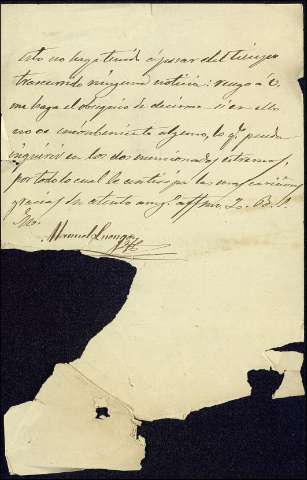 esto no haya tenido á pesar del tiempo
trascurrido ninguna noticia: ruego á V.
me haga el obsequio de decirme si en ello
no os inconbeniente alguno, lo q.e pueda
inquirir en los dos mencionados estremos,
por todo lo cual le anticipa las mas
gracias su atento am.o aff.mo Q. B. S.
Mo.
Manuel Luengo